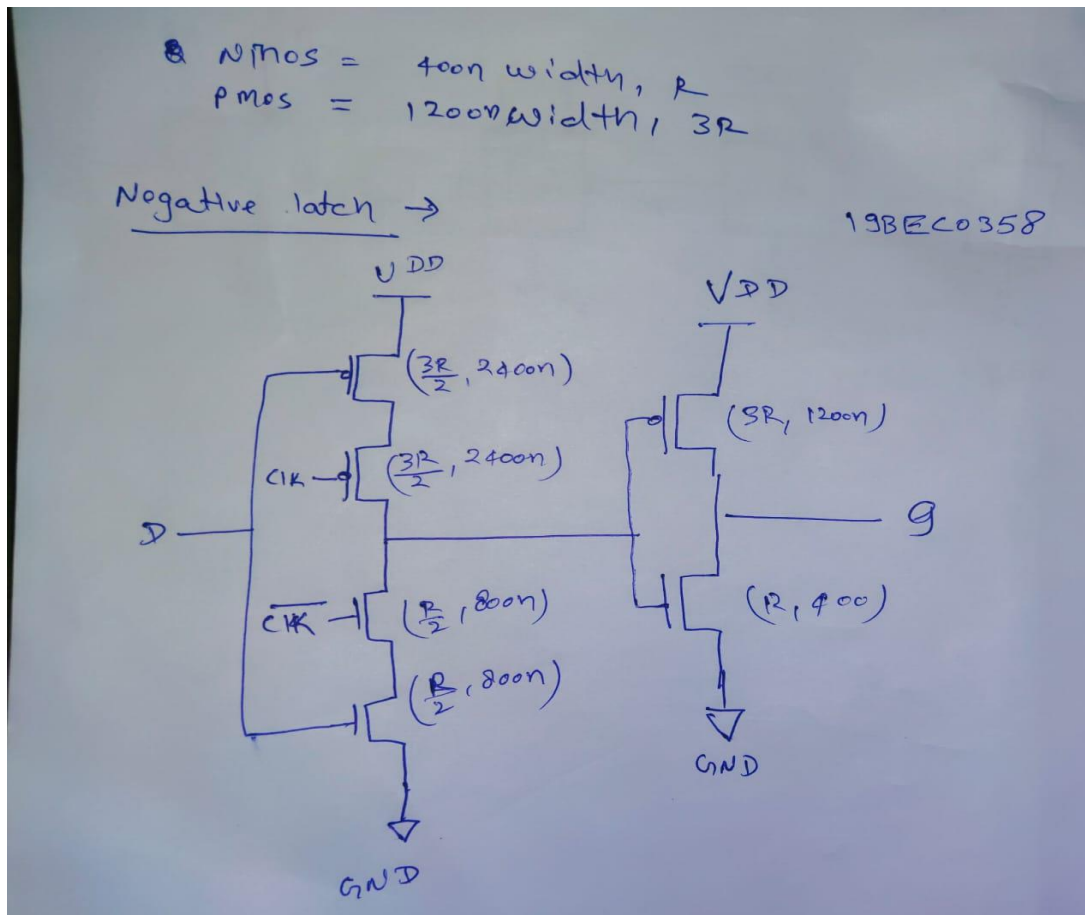 NMOS = 400n width, R
PMOS = 1200n width, 3R
Negative latch →
19BEC0358
VDD
VDD
(3R/2, 2400n)
(3R, 1200n)
CLK
(3R/2, 2400n)
D
Q
C̅L̅K̅
(R/2, 800n)
(R, 400)
(R/2, 800n)
GND
GND